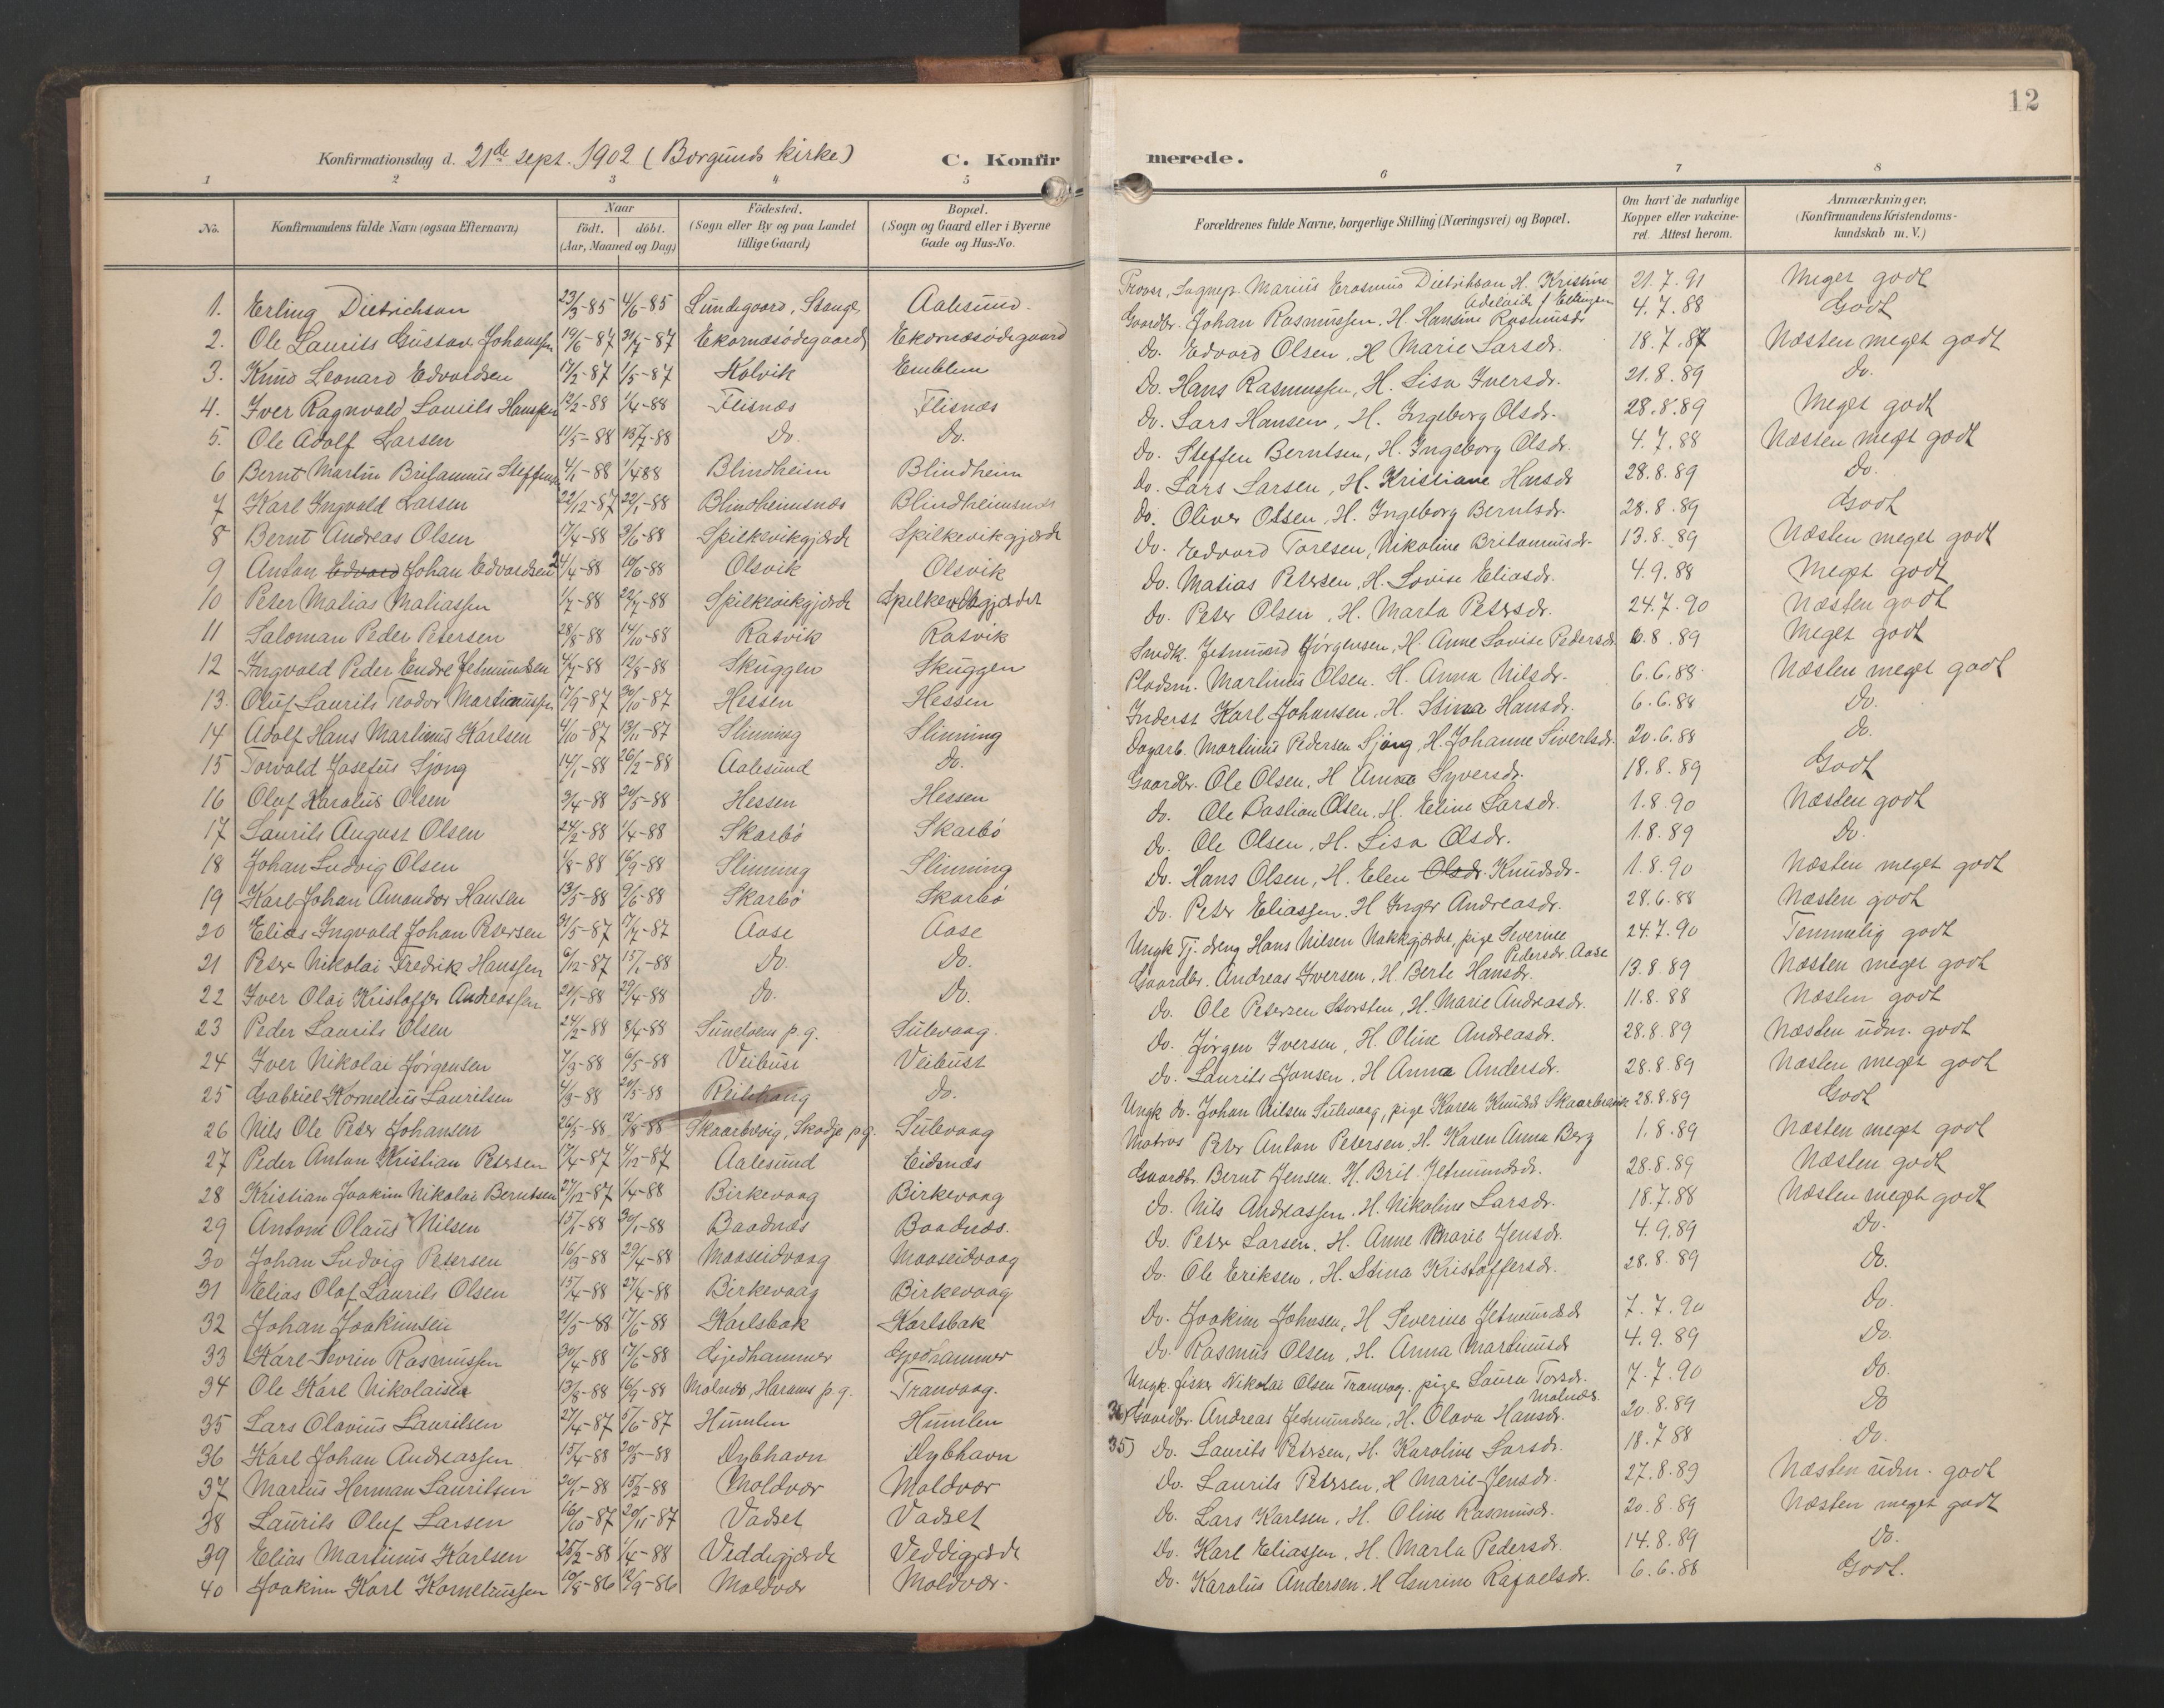 12
Konfirmationsdag d. 21de sept. 1902 (Borgunds kirke) C. Konfirmerede.
1 2 3 4 5 6 7 8
No. Konfirmandens fulde Navn (ogsaa Efternavn) Naar födt. döbt. (Aar, Maaned og Dag) Födested. (Sogn eller By og paa Landet tillige Gaard) Bopæl. (Sogn og Gaard eller i Byerne Gade og Hus-No. Forældrenes fulde Navne, borgerlige Stilling (Næringsvei) og Bopæl. Om havt de naturlige Kopper eller vakcineret. Attest herom. Anmærkninger. (Konfirmandens Kristendomskundskab m. V.)
1. Erling Dietrichson 23/3-85 4/6-85 Lundegaard, Aalesund. Provst, Sognepr. Marius Erasmus Dietrichson H. Kristine Adelaide f. Ellingsen 21.7.91 Meget godt
2. Ole Laurits Gustav Johanssen 19/6-87 31/7-87 Ekornæsödegaard Ekornæsödegaard Gaardbr. Johan Rasmussen, H. Hansine Rasmusdr 4.7.88 Godt
3. Knud Leonard Edvardsen 17/2-87 1/5-87 Kolvik Emblem Do. Edvard Olsen, H. Marie Larsdr. 18.7.87 Næsten meget godt
4. Iver Ragnvald Laurits Hanssen 12/2-88 1/4-88 Flisnæs Flisnæs Do. Hans Rasmussen, H. Lisa Iversdr. 21.8.89 Do.
5. Ole Adolf Larsen 11/5-88 13/7-88 Do. Do. Do. Lars Hansen, H. Ingeborg Olsdr. 28.8.89 Meget godt
6 Bernt Martin Britannus Steffensen 4/1-88 1/4 88 Blindheim Blindheim Do. Steffen Berntsen, H. Ingeborg Olsdr. 4.7.88 Næsten meget godt
7 Karl Ingvald Larsen 22/12-87 22/1-88 Blindheimsnæs Blindheimsnæs Do. Lars Larsen, H. Kristiane Hansdr 28.8.89 Do.
8 Bernt Andreas Olsen 17/4-88 3/6-88 Spilkevikgjærde Spilkevikgjærde Do. Oliver Olsen, H. Ingeborg Berntsdr. 28.8.89 Godt
9 Anton Edvard Johan Edvardsen 24/4-88 10/6-88 Olsvik Olsvik Do. Edvard Torlsen, Nikoline Britannusdr. 13.8.89 Næsten meget godt
10 Peter Matias Matiassen 1/7-88 22/7-88 Spilkevikgjærde Spelkevikgjærdet Do. Matias Petersen, H. Lovise Eliasdr. 4.9.88 Meget godt
11 Saloman Peder Petersen 28/8-88 14/10-88 Ratvik Ratvik Do. Peter Olsen, H. Marta Petersdr. 24.7.90 Næsten godt
12 Ingvald Peder Endre Jetmundsen 4/7-88 12/8-88 Skuggen Skuggen Snedk. Jetmund Jörgensen, H. Anne Lovise Pedersdr. 6.8.89 Meget godt
13. Oluf Laurits Teodor Martinussen 17/9-87 30/10-87 Hessen Hessen Pladsm. Martinus Olsen. H. Anna Nilsdr. 6.6.88 Næsten meget godt
14 Adolf Hans Martinus Karlsen 4/10-87 13/11-87 Slinning Slinning Inderst Karl Johansen, H. Stina Hansdr. 6.6.88 Do.
15 Torvald Josefus Sjong 14/1-88 26/2-88 Aalesund Do. Dagarb. Martinus Pedersen Sjong, H. Johanne Sivertsdr. 20.6.88 Do.
16 Olaf Karolus Olsen 3/4-88 20/5-88 Hessen Hessen Gaardbr. Ole Olsen, H. Anna Syversdr. 18.8.89 Godt
17 Laurits August Olsen 24/2-88 1/4-88 Skarbö Skarbö do. Ole Bastian Olsen, H. Eline Larsdr. 1.8.90 Næsten godt
18 Johan Ludvig Olsen 1/8-88 16/9-88 Slinning Slinning do. Ole Olsen, H. Lisa Olsdr. 1.8.89 Do.
19 Karl Johan Amandor Hansen 13/5-88 9/6-88 Skarbö Skarbö Do. Hans Olsen, H. Elen Olsdr. Knudsdr. 1.8.90 Næsten meget godt
20 Elias Ingvald Johan Petersen 31/5-87 17/7-87 Aase Aase Do. Peter Eliassen, H. Inger Andreasdr. 28.6.88 Næsten godt
21 Peter Nikolai Fredrik Hanssen 6/12-87 15/1-88 Do. Do. Ungk. Tj. dreng Hans Nilsen Nakkgjærde, pige Severine Pedersdr. Aase 24.7.90 Temmelig godt
22 Iver Olai Kristoffer Andreassen 21/1-88 29/4-88 do. Do. Gaardbr. Andreas Iversen, H. Berte Hansdr. 13.8.89 Næsten meget godt
23 Peder Laurits Olsen 24/2-88 8/4-88 Sunelvens p g. Sulevaag. do. Ole Petersen Storsten, H. Marie Andreasdr. 11.8.88 Næsten godt
24 Iver Nikolai Jörgensen 7/3-88 6/5-88 Veibust Veibust Do. Jörgen Iversen, H. Oline Andreasdr. 28.8.89 Næsten udm. godt
25 Gabriel Kornelius Lauritsen 4/3-88 20/5-88 Reitehaug Do. Do. Laurits Jonsen, H. Anna Andersdr. 28.8.89 Næsten meget godt
26 Nils Ole Peter Johansen 26/5-88 12/8-88 Skaarbrevig, Skodje p g. Sulevaag Ungk. do. Johan Nilsen Sulevaag, pige Karen Knudsd. 28.8.89 Godt
27 Peder Anton Kristian Petersen 17/4-87 4/12-87 Aalesund Eidsnæs Matros Peter Anton Petersen, H. Karen Anna Berg 1.8.89 Næsten meget godt
28 Kristian Joakim Nikolai Berntsen 27/12-87 1/4-88 Birkevaag Birkevaag Gaardbr. Bernt Jensen. H. Brit Jetmundsdr. 28.8.89 Næsten godt
29 Anton Olaus Nilsen 15/1-88 30/1-88 Baadnæs Baadnæs. do. Nils Andreassen, H. Nikoline Larsdr. 18.7.88 Næsten meget godt
30 Johan Ludvig Petersen 16/3-88 29/4-88 Maaseidvaag Maaseidvaag Do. Peter Larsen. H. Anne Marie Jensdr. 4.9.89 Do.
31 Elias Olaf Laurits Olsen 15/4-88 27/4-88 Birkevaag Birkevaag Do. Ole Eriksen, H. Stina Kristoffersdr. 28.8.89 Do.
32 Johan Joakimsen 21/5-88 17/6-88 Karlsbak Karlsbak Do. Joakim Johnsen, H. Severine Jetmundsdr 7.7.90 Do.
33 Karl Severin Rasmussen 30/4-88 17/6-88 Gjedhammer Gjedhammer Do. Rasmus Olsen, H. Anna Martinusdr 4.9.89 Do.
34 Ole Karl Nikolaisen 13/8-88 16/9-88 Molnæs, Harams p. g. Tranvaag. Ungk. fisker Nikolai Olsen Tranvaag. pige Laura Torsdr. Molnæs. 7.7.90 Do.
35 Lars Olavius Lauritsen 27/4-87 5/6-87 Humlen Humlen 36) Gaardbr. Andreas Jetmundsen, H. Olava Hansdr. 20.8.89 Do
36 Karl Johan Andreassen 15/4-88 20/5-88 Dybhavn Dybhavn 35) Do. Laurits Petersen, H. Karoline Larsdr. 18.7 88 Do.
37 Marius Herman Lauritsen 20/1-88 15/2-88 Moldvær Moldvær Do. Laurits Petersen, H. Marie Jensdr. 27.8.89 Næsten udm. godt
38 Laurits Oluf Larsen 16/10-87 20/11-87 Vadset Vadset Do. Lars Karlsen, H. Oline Rasmusdr. 20.8.89 Næsten meget godt
39 Elias Martinus Karlsen 25/2-88 1/4-88 Veddegjærde Veddegjærde Do. Karl Eliassen, H. Marta Pedersdr. 14.8.89 Do.
40 Joakim Karl Korneliussen 10/8-86 12/9-86 Moldvær Moldvær. Do. Karolus Andersen. H Gurine Rafaelsdr. 6.6.88 Godt.